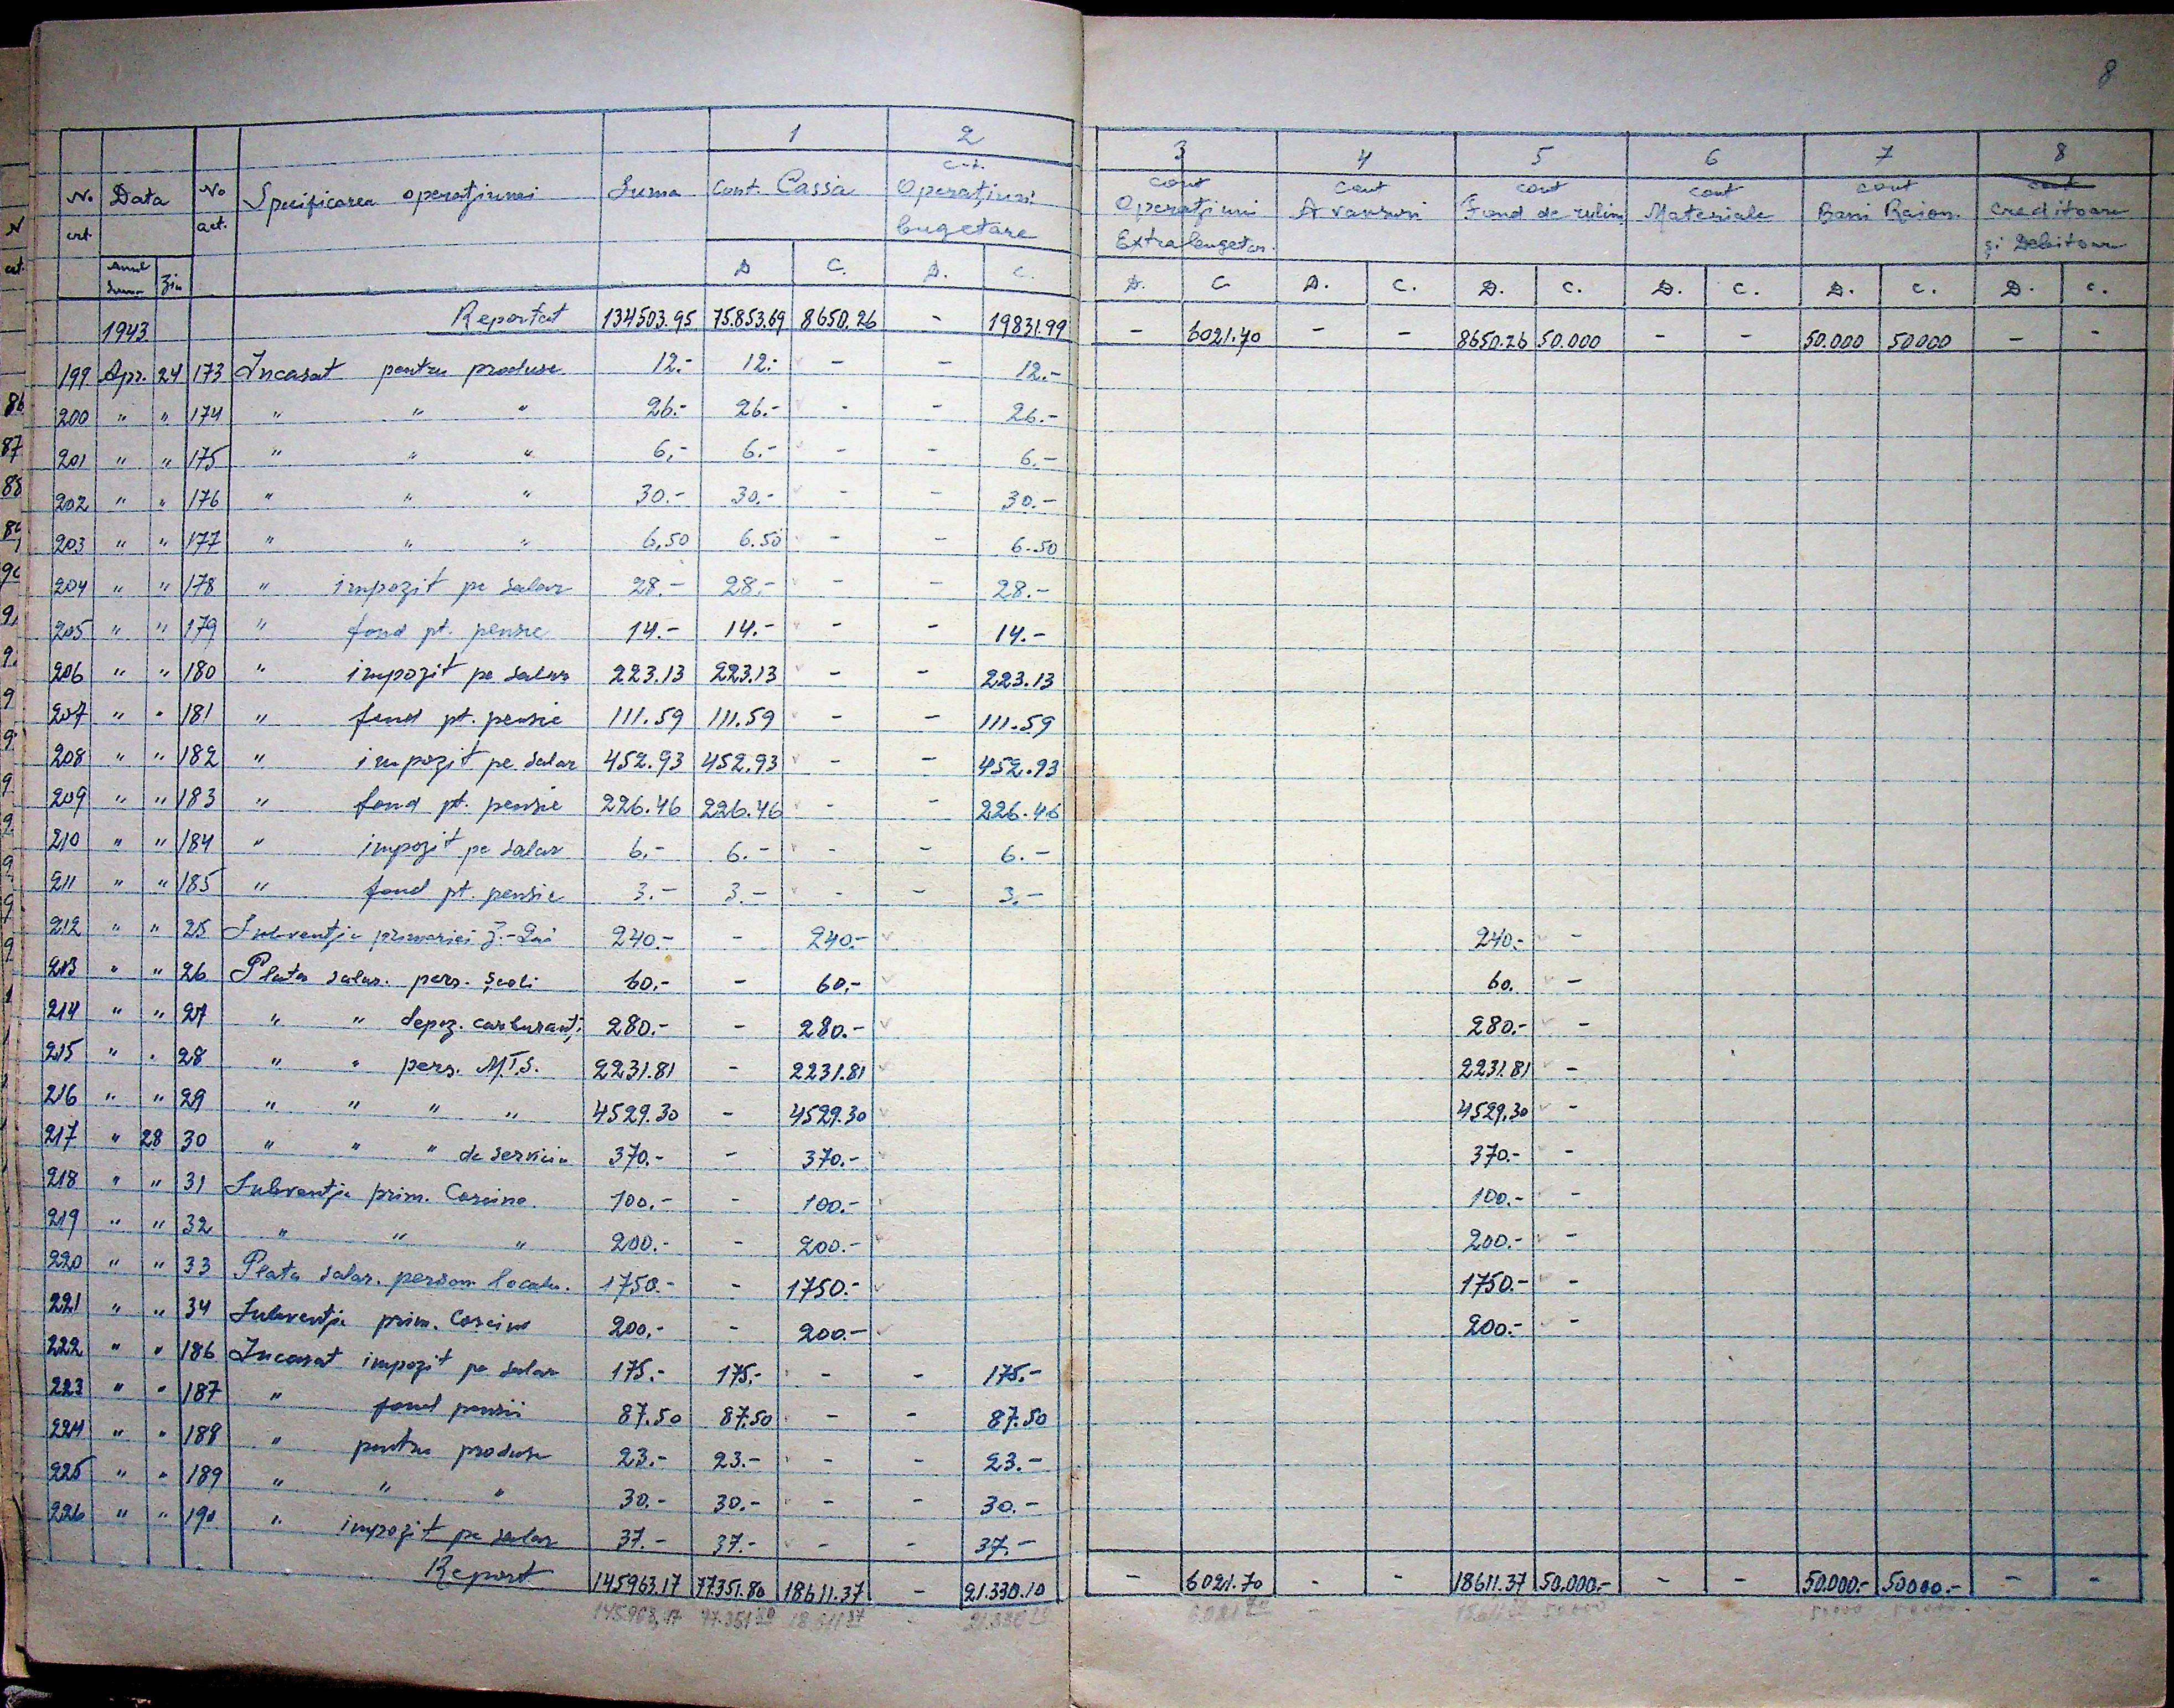 8
1 2 3 4 5 6 7 8
No. crt. Data No act. Specificarea operațiunei Suma Cont. Cassa c-t. Operațiuni bugetare cont Operațiuni Extrabugetar. cont Avansuri cont Fond de rulm cont Materiale cont Bani Raion. cont Creditoare și Debitoare
Anul Ziu D C. D. C. D. C. D. C. D. C. D. C. D. C. D. C.
1943 Reportat 134503.95 75.853.69 8650.26 - 19831.99 - 6021.70 - - 8650.26 50.000 - - 50.000 50000 - -
199 Apr. 24 173 Incasat pentru produse 12.- 12.- - - 12.-
200 " " 174 " " " 26.- 26.- - - 26.-
201 " " 175 " " " 6.- 6.- - - 6.-
202 " " 176 " " " 30.- 30.- - - 30.-
203 " " 177 " " " 6,50 6.50 - - 6.50
204 " " 178 " impozit pe salar 28.- 28.- - - 28.-
205 " " 179 " fond pt. pensie 14.- 14.- - - 14.-
206 " " 180 " impozit pe salar 223.13 223.13 - - 223.13
207 " " 181 " fond pt. pensie 111.59 111.59 - - 111.59
208 " " 182 " impozit pe salar 452.93 452.93 - - 452.93
209 " " 183 " fond pt. pensie 226.46 226.46 - - 226.46
210 " " 184 " impozit pe salar 6.- 6.- - - 6.-
211 " " 185 " fond pt. pensie 3.- 3.- - - 3.-
212 " " 25 Subvenția primariei 240.- - 240.- 240.- -
213 " " 26 Plata salar. pers. școli 60.- - 60.- 60. -
214 " " 27 " " depoz. carburanți 280.- - 280.- 280.- -
215 " " 28 " " pers. M.T.S. 2231.81 - 2231.81 2231.81 -
216 " " 29 " " " " 4529.30 - 4529.30 4529.30 -
217 " 28 30 " " " de serviciu 370.- - 370.- 370.- -
218 " " 31 Subvenția prim. Corcino 100.- - 100.- 100.- -
219 " " 32 " " " 200.- - 200.- 200.- -
220 " " 33 Plata salar. person 1750.- - 1750.- 1750.- -
221 " " 34 Subvenția prim. Corcino 200.- - 200.- 200.- -
222 " " 186 Incasat impozit pe salar 175.- 175.- - - 175.-
223 " " 187 " fond pensii 87.50 87.50 - - 87.50
224 " " 188 " pentru produse 23.- 23.- - - 23.-
225 " " 189 " " " 30.- 30.- - - 30.-
226 " " 190 " impozit pe salar 37.- 37.- - - 37.-
Report 145963.17 77351.80 18611.37 - 21.330.10 - 6021.70 - - 18611.37 50.000.- - - 50.000.- 50000.- - -